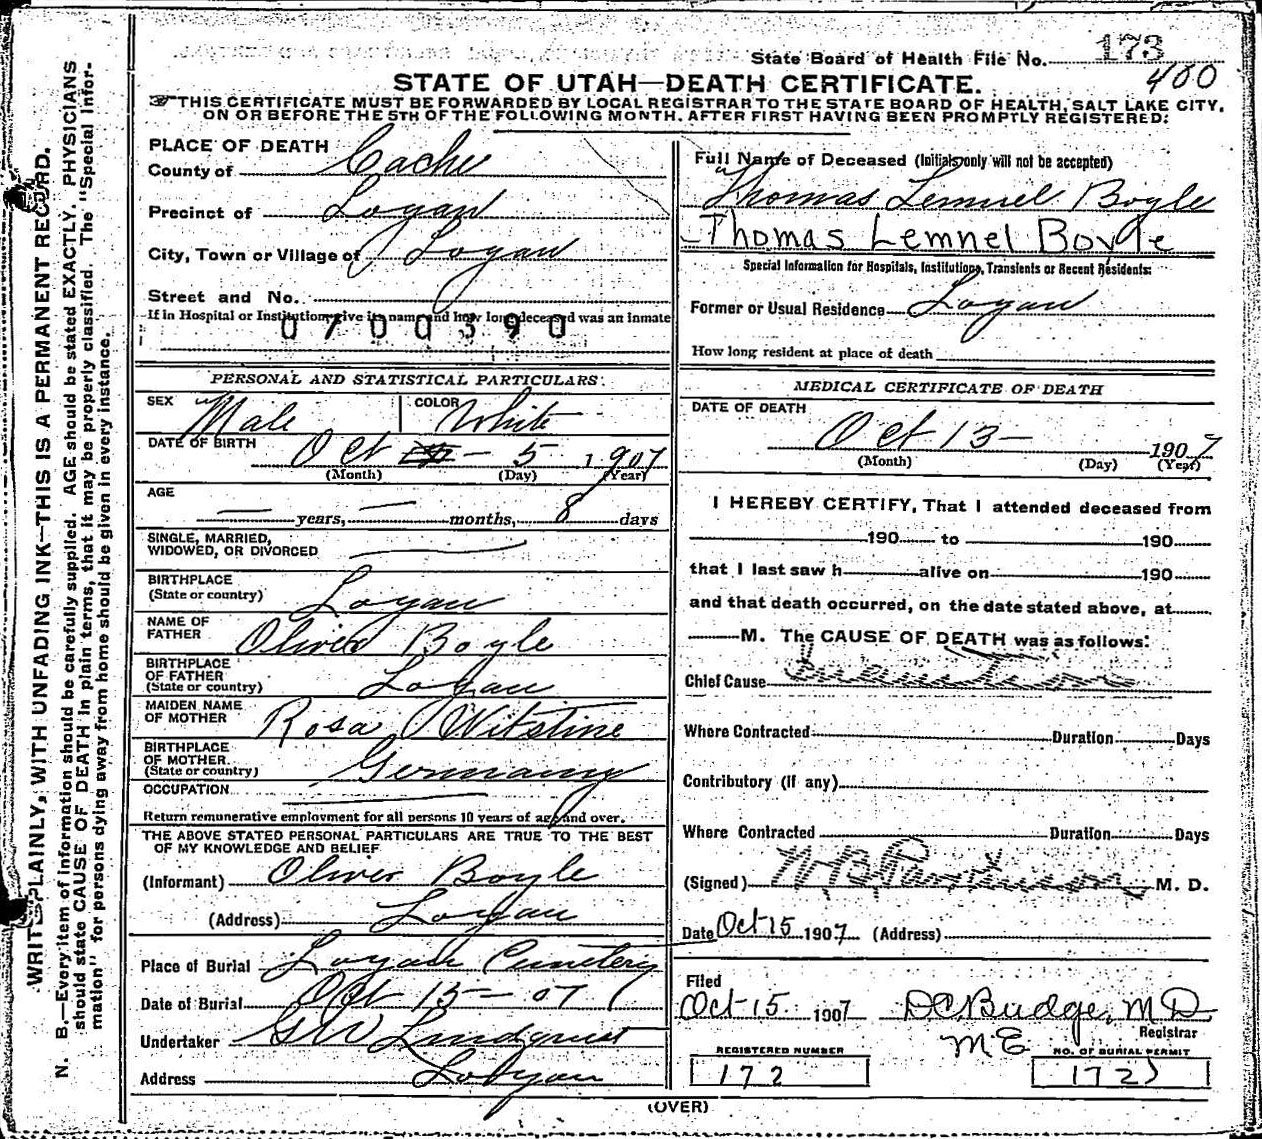 State Board of Health File No. 173
400
STATE OF UTAH—DEATH CERTIFICATE.
☞THIS CERTIFICATE MUST BE FORWARDED BY LOCAL REGISTRAR TO THE STATE BOARD OF HEALTH, SALT LAKE CITY,
ON OR BEFORE THE 5TH OF THE FOLLOWING MONTH. AFTER FIRST HAVING BEEN PROMPTLY REGISTERED:
WRITE PLAINLY, WITH UNFADING INK—THIS IS A PERMANENT RECORD.
N. B.—Every item of information should be carefully supplied. AGE should be stated EXACTLY. PHYSICIANS
should state CAUSE OF DEATH in plain terms, that it may be properly classified. The "Special Infor-
mation" for persons dying away from home should be given in every instance.
PLACE OF DEATH
County of Cache
Precinct of Logan
City, Town or Village of Logan
Street and No.
If in Hospital or Institution give its name and how long deceased was an inmate
0700390
PERSONAL AND STATISTICAL PARTICULARS.
SEX Male COLOR White
DATE OF BIRTH
Oct - 5 1907
(Month) (Day) (Year)
AGE
— years, — months, 8 days
SINGLE, MARRIED,
WIDOWED, OR DIVORCED
BIRTHPLACE
(State or country) Logan
NAME OF
FATHER Oliver Boyle
BIRTHPLACE
OF FATHER
(State or country) Logan
MAIDEN NAME
OF MOTHER Rosa Witstine
BIRTHPLACE
OF MOTHER.
(State or country) Germany
OCCUPATION
Return remunerative employment for all persons 10 years of age and over.
THE ABOVE STATED PERSONAL PARTICULARS ARE TRUE TO THE BEST
OF MY KNOWLEDGE AND BELIEF
(Informant) Oliver Boyle
(Address) Logan
Place of Burial Logan Cemetery
Date of Burial Oct 15 - 07
Undertaker GW Lindquist
Address Logan
Full Name of Deceased (Initials only will not be accepted)
Thomas Lemuel Boyle
Thomas Lemnel Boyle
Special Information for Hospitals, Institutions, Transients or Recent Residents:
Former or Usual Residence Logan
How long resident at place of death
MEDICAL CERTIFICATE OF DEATH
DATE OF DEATH
Oct 13 - 1907
(Month) (Day) (Year)
I HEREBY CERTIFY, That I attended deceased from
190 to 190
that I last saw h alive on 190
and that death occurred, on the date stated above, at
M. The CAUSE OF DEATH was as follows:
Chief Cause
Where Contracted Duration Days
Contributory (If any)
Where Contracted Duration Days
(Signed) W. B. Parkinson M. D.
Date Oct 15 1907 (Address)
Filed
Oct 15 1907 DC Budge, M D
Registrar
M E
REGISTERED NUMBER
172
NO. OF BURIAL PERMIT
172
(OVER)